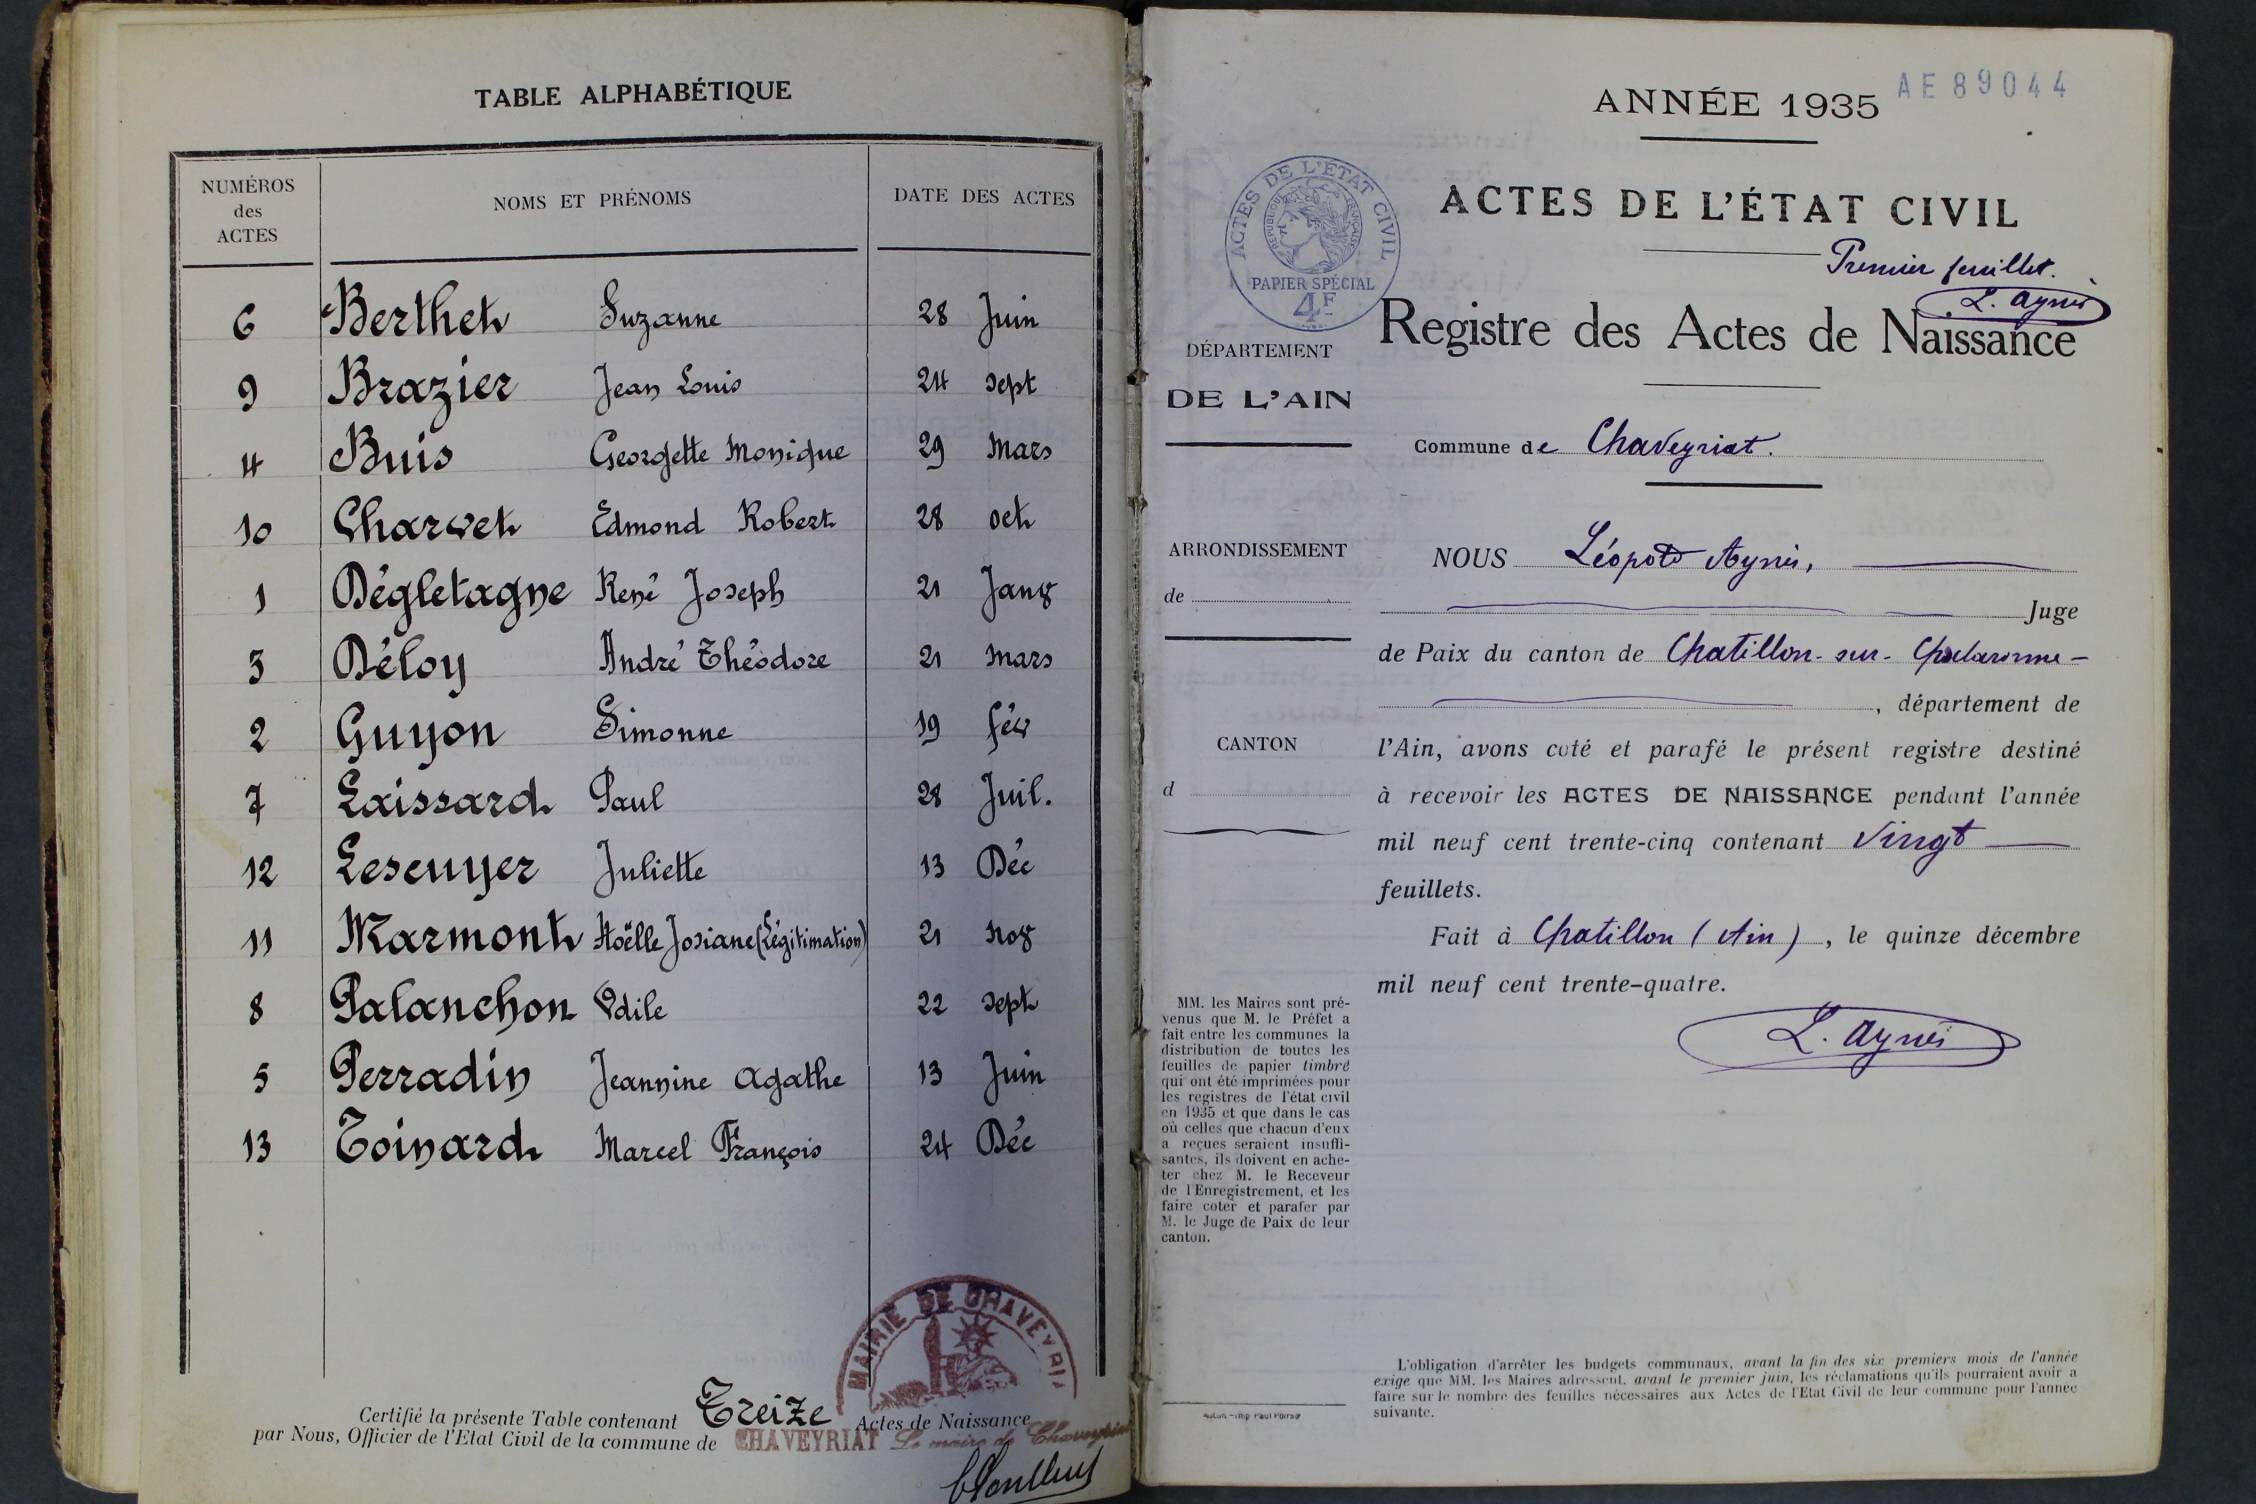 TABLE ALPHABÉTIQUE
NUMÉROS des ACTES NOMS ET PRÉNOMS DATE DES ACTES
6 Berthet Suzanne 28 Juin
9 Brazier Jean Louis 24 sept
4 Buis Georgette Monique 29 Mars
10 Charvet Edmond Robert 28 oct
1 Dégletagne René Joseph 21 Janv
3 Déloy André Théodore 21 Mars
2 Guyon Simonne 19 fév
7 Laissard Paul 28 Juil.
12 Lescuyer Juliette 13 Déc
11 Marmont Noëlle Josiane (Légitimation) 21 Nov
8 Palanchon Odile 22 sept
5 Perradin Jeannine Agathe 13 Juin
13 Toinard Marcel François 24 Déc
MAIRIE DE CHAVEYRIA
Certifié la présente Table contenant Treize Actes de Naissance
par Nous, Officier de l'Etat Civil de la commune de CHAVEYRIAT Le maire de Chaveyriat
ANNÉE 1935
AE 89044
ACTES DE L'ÉTAT CIVIL
Premier feuillet.
L. Aynès
ACTES DE L'ÉTAT CIVIL
RÉPUBLIQUE FRANÇAISE
PAPIER SPÉCIAL
4F
Registre des Actes de Naissance
DÉPARTEMENT
DE L'AIN
Commune de Chaveyriat.
ARRONDISSEMENT
de
CANTON
d
NOUS Léopold Aynès,
Juge
de Paix du canton de Chatillon-sur-Chalaronne-
, département de
l'Ain, avons coté et parafé le présent registre destiné
à recevoir les ACTES DE NAISSANCE pendant l'année
mil neuf cent trente-cinq contenant Vingt
feuillets.
Fait à Chatillon (Ain), le quinze décembre
mil neuf cent trente-quatre.
L. Aynès
MM. les Maires sont pré-
venus que M. le Préfet a
fait entre les communes la
distribution de toutes les
feuilles de papier timbré
qui ont été imprimées pour
les registres de l'état civil
en 1935 et que dans le cas
où celles que chacun d'eux
a reçues seraient insuffi-
santes, ils doivent en ache-
ter chez M. le Receveur
de l'Enregistrement, et les
faire coter et parafer par
M. le Juge de Paix de leur
canton.
L'obligation d'arrêter les budgets communaux, avant la fin des six premiers mois de l'année
exige que MM. les Maires adressent, avant le premier juin, les réclamations qu'ils pourraient avoir à
faire sur le nombre des feuilles nécessaires aux Actes de l'Etat Civil de leur commune pour l'année
suivante.